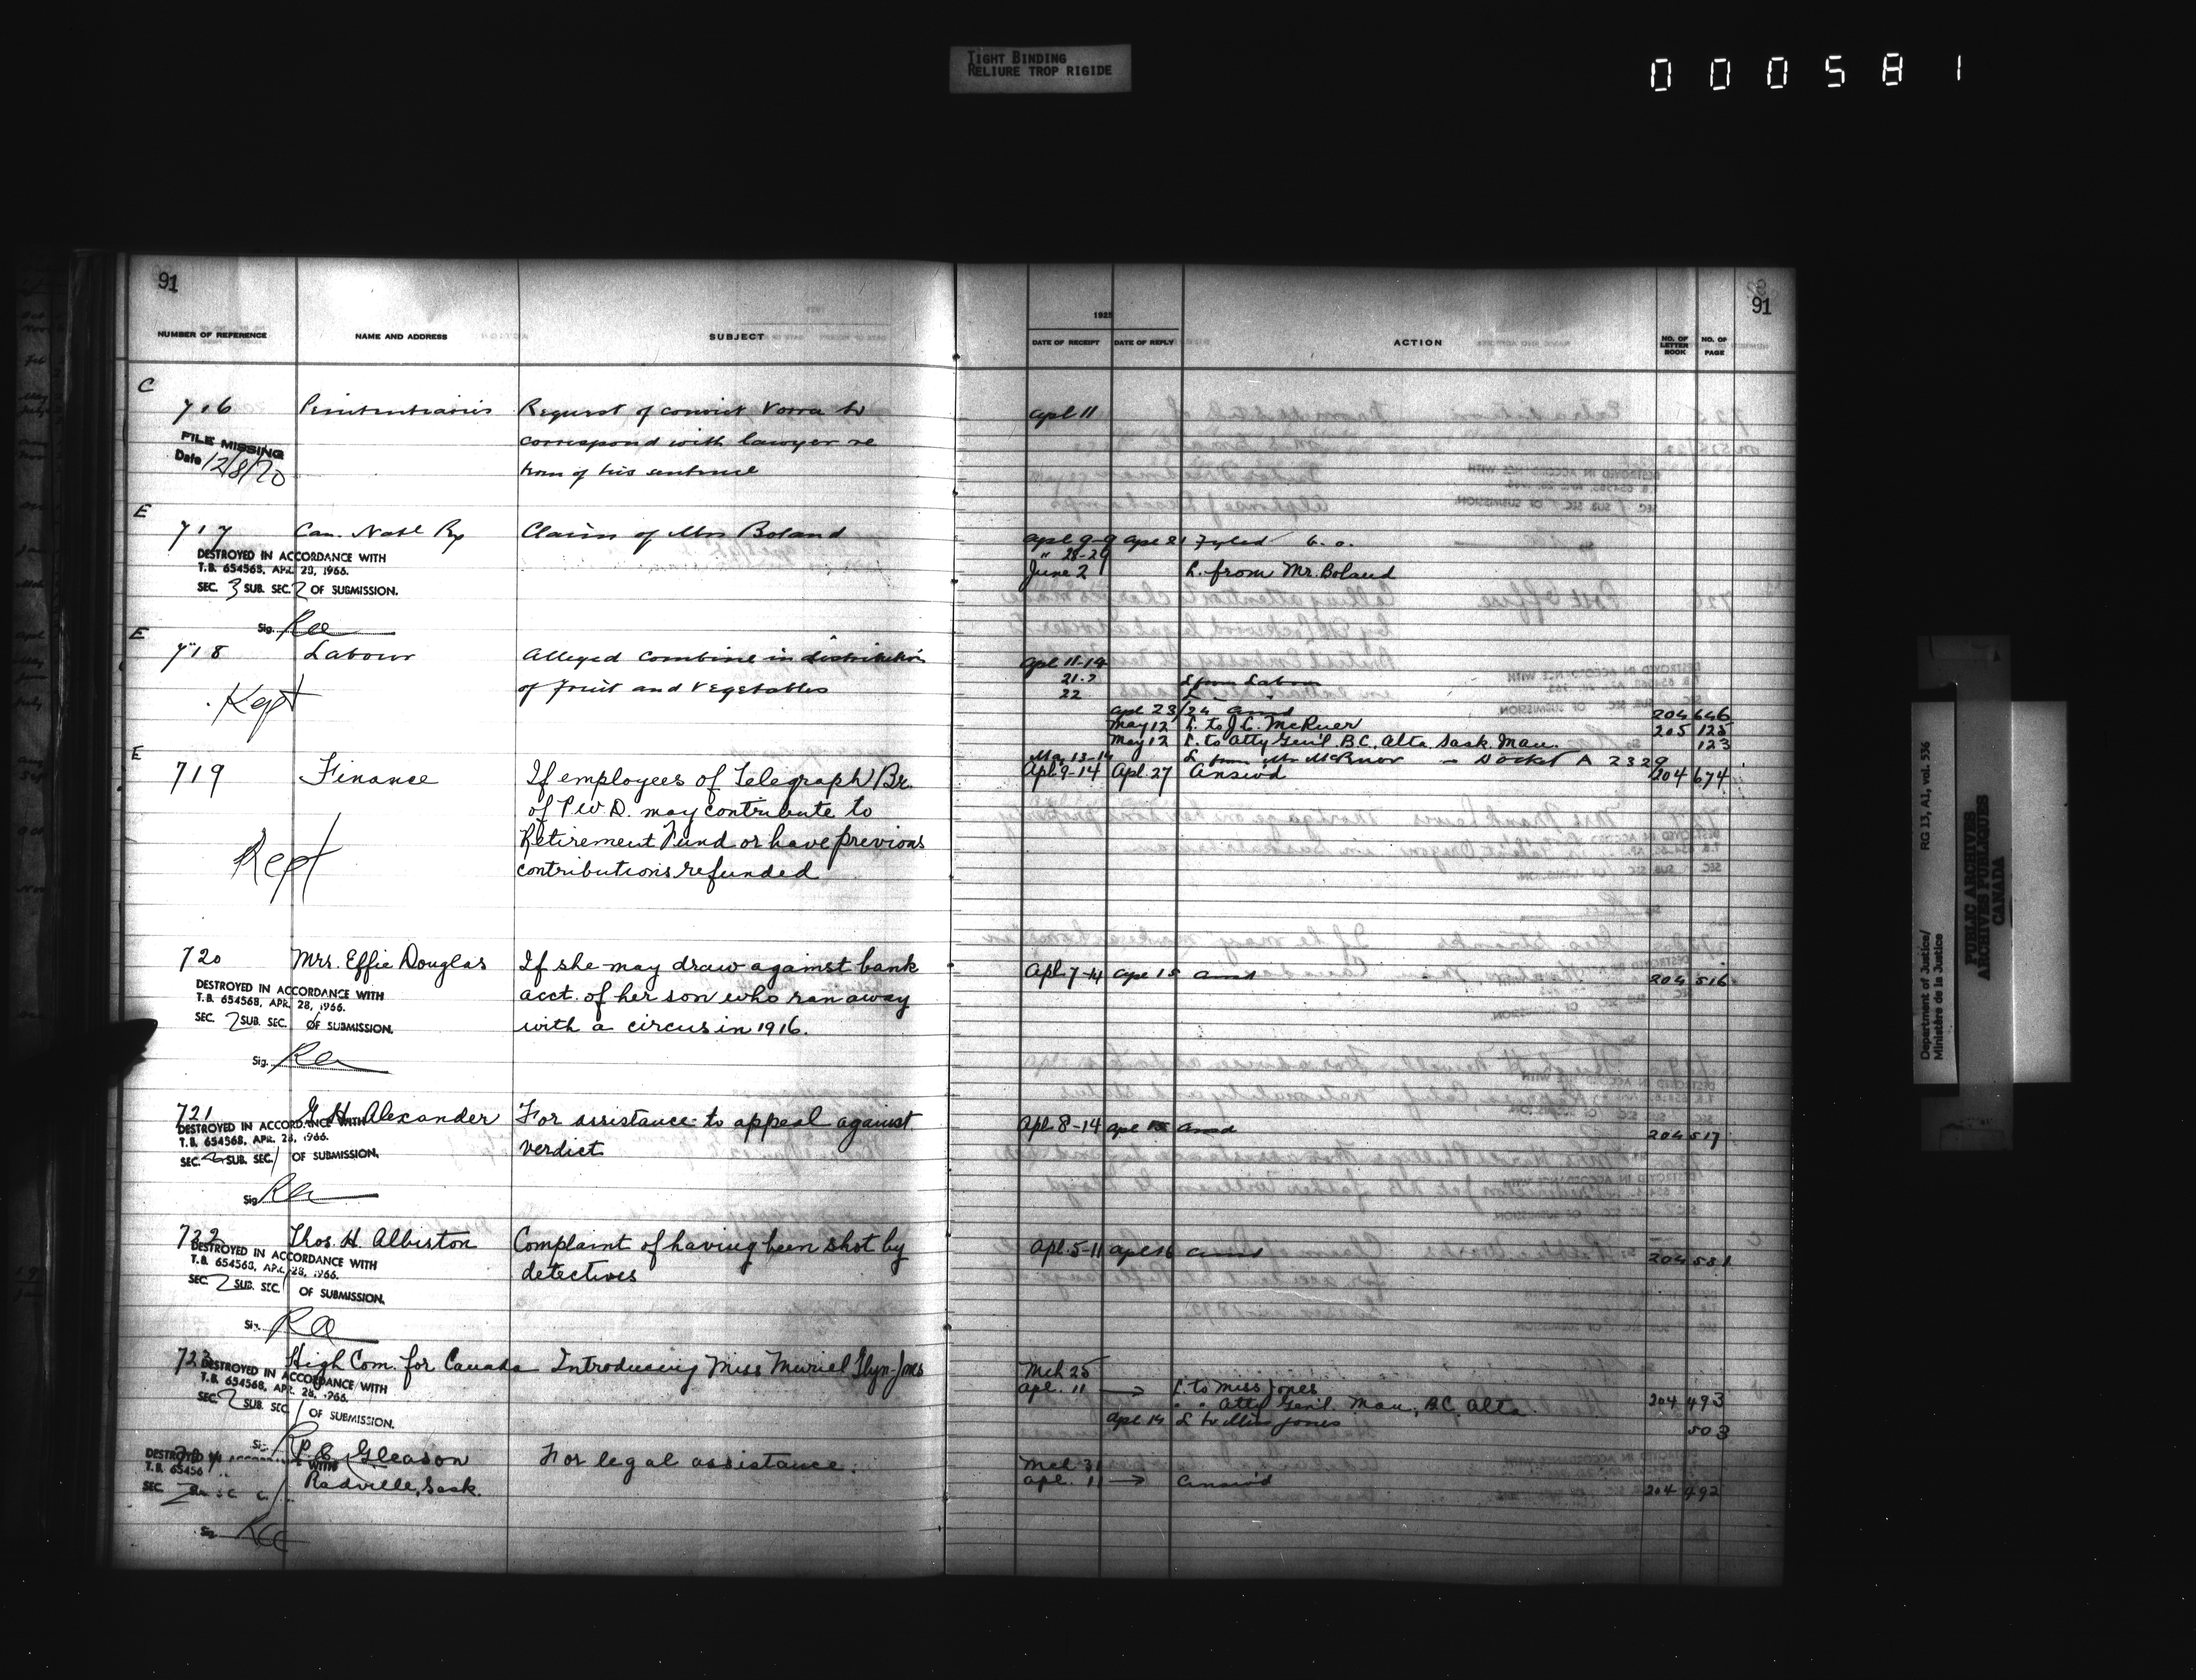 TIGHT BINDING
RELIURE TROP RIGIDE
000581
91
NUMBER OF REFERENCE NAME AND ADDRESS SUBJECT
C
716 Penitentiaries Request of convict Vorra to
correspond with lawyer re
term of his sentence
FILE MISSING
Date 12/8/70
E
717 Can. Natl Ry Claim of Mrs Boland
DESTROYED IN ACCORDANCE WITH
T.B. 654568, APR. 28, 1966.
SEC. 3 SUB. SEC. 2 OF SUBMISSION.
Sig.
E
718 Labour Alleged combine in distribution
of fruit and vegetables
Kept
E
719 Finance If employees of Telegraph Br.
of P.W.D. may contribute to
Retirement Fund or have previous
contributions refunded
Kept
720 Mrs. Effie Douglas If she may draw against bank
acct. of her son who ran away
with a circus in 1916.
DESTROYED IN ACCORDANCE WITH
T.B. 654568, APR. 28, 1966.
SEC. 2 SUB. SEC. OF SUBMISSION.
Sig.
721 G. H. Alexander For assistance to appeal against
verdict
DESTROYED IN ACCORDANCE WITH
T.B. 654568, APR. 28, 1966.
SEC. 2 SUB. SEC. 1 OF SUBMISSION.
Sig.
722 Thos. H. Albiston Complaint of having been shot by
detectives
DESTROYED IN ACCORDANCE WITH
T.B. 654568, APR. 28, 1966.
SEC. 2 SUB. SEC. 1 OF SUBMISSION.
Sig.
723 High Com. for Canada Introducing Miss Muriel Glyn-Jones
DESTROYED IN ACCORDANCE WITH
T.B. 654568, APR. 28, 1966.
SEC. 2 SUB. SEC. 1 OF SUBMISSION.
Sig.
724 Gleason For legal assistance.
Radville, Sask.
DESTROYED
T.B. 65456
SEC. 2
Sig.
91
1925
DATE OF RECEIPT DATE OF REPLY ACTION NO. OF LETTER BOOK NO. OF PAGE
Apl 11
Apl 9-9 Apl 21 Fyled
" 28-29
June 2 L. from Mr. Boland
Apl 11-14
21-2 L from Labour
22 L "
Apl 23/24 Ansd 204 646
May 12 L. to J.C. McRuer 205 125
May 12 L. to Atty Gen'l. B.C. Alta. Sask. Man. 123
May 13-14 L from Mr McRuer - Docket A 2329
Apl. 9-14 Apl. 27 Answ'd 204 674
Apl. 7-14 Apl 15 Ansd 204 516
Apl. 8-14 Apl 15 Ansd 204 517
Apl. 5-11 Apl 16 Ansd 204 531
Mch 25
Apl. 11 → L. to Miss Jones
" " Atty Gen'l. Man., B.C., Alta 204 493
Apl 14 L to Miss Jones 503
Mch 31
Apl. 11 → Answ'd 204 492
Department of Justice/
Ministère de la Justice
RG 13, A1, vol. 536
PUBLIC ARCHIVES
ARCHIVES PUBLIQUES
CANADA